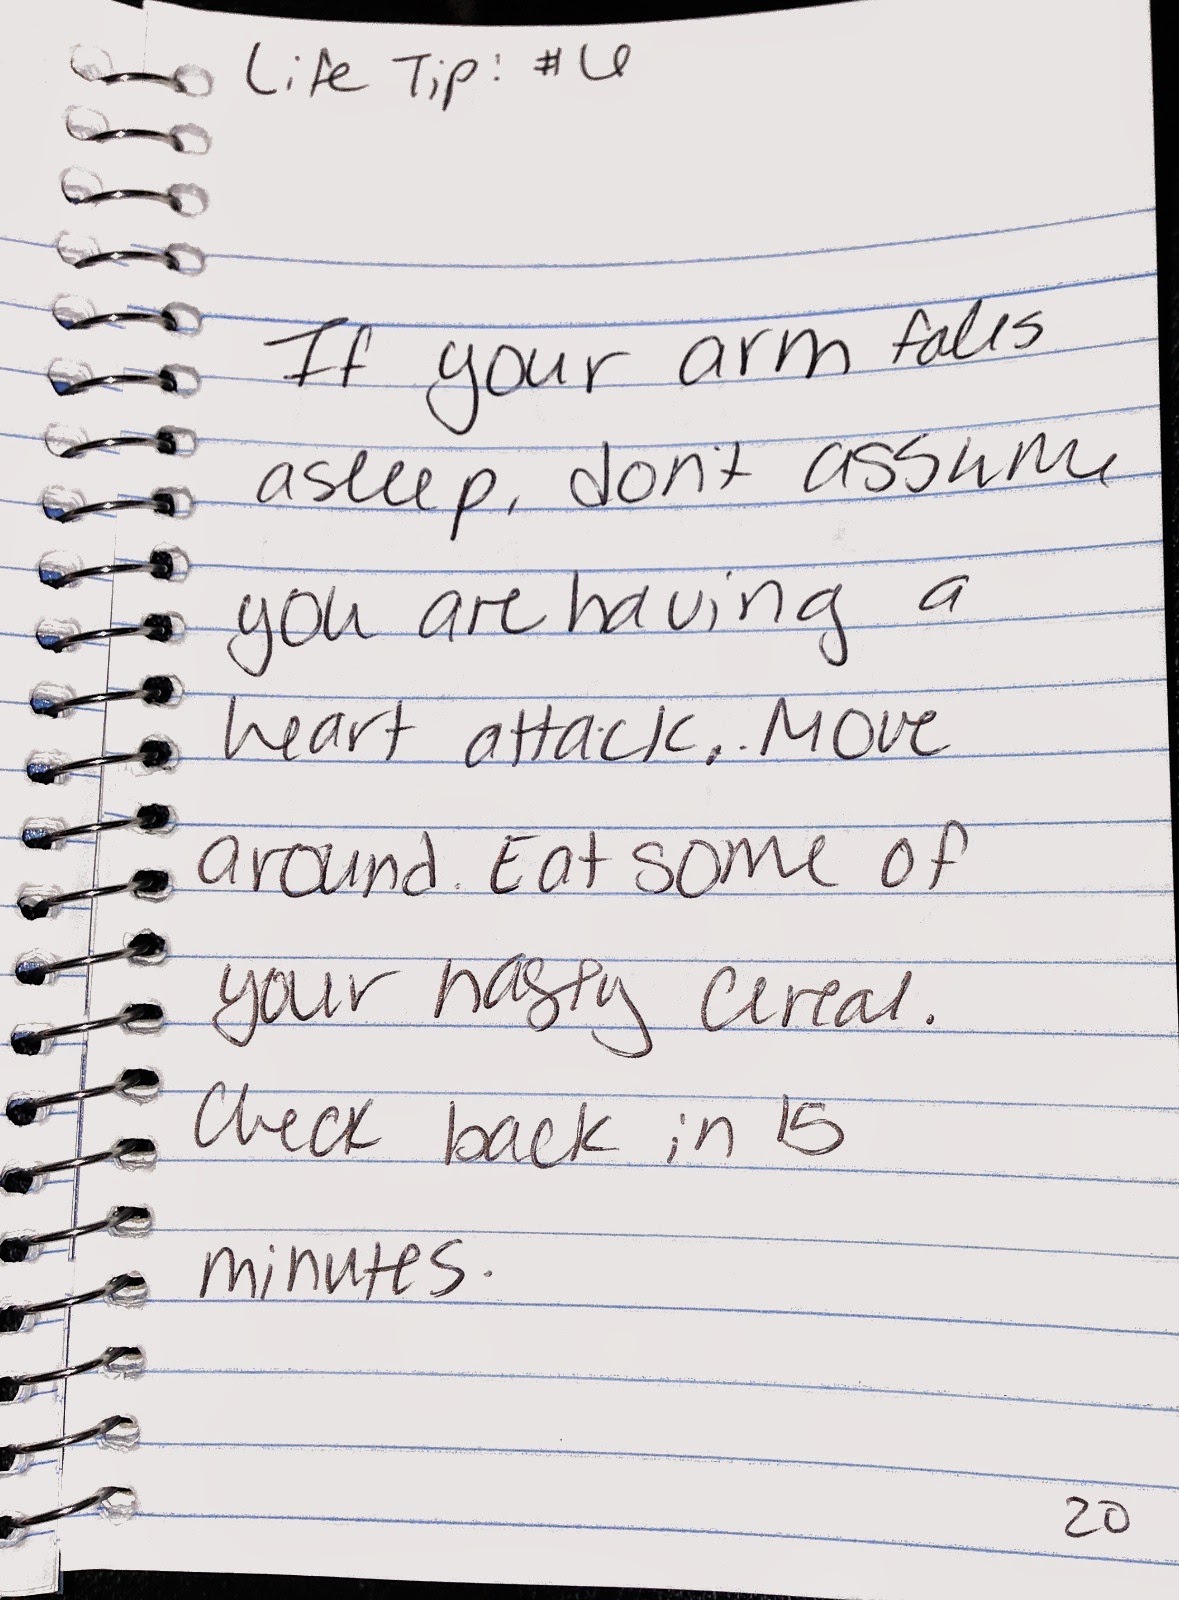 Life Tip: #6
If your arm falls
asleep, don't assume
you are having a
heart attack. Move
around. Eat some of
your nasty cereal.
Check back in 15
minutes.
20